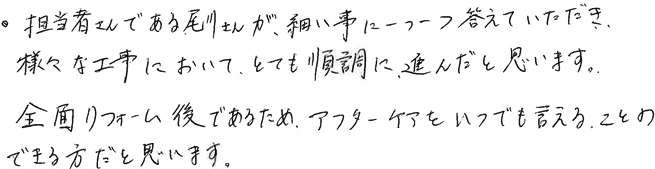 • 担当者さんである尾川さんが、細い事に一つ一つ答えていただき、
様々な工事において、とても順調に、進んだと思います。
全面リフォーム後であるため、アフターケアをいつでも言える、ことの
できる方だと思います。